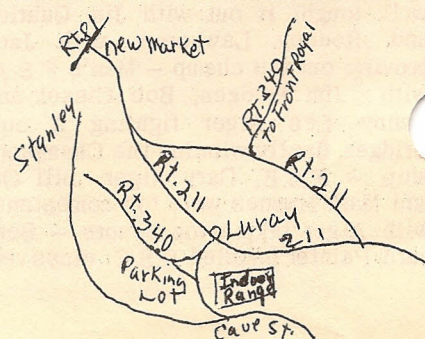 Rt.81
new market
Rt.340
to Front Royal
Stanley
Rt.211
Rt.211
Rt.340
Luray
211
Parking
Lot
Indoor
Range
Cave St.